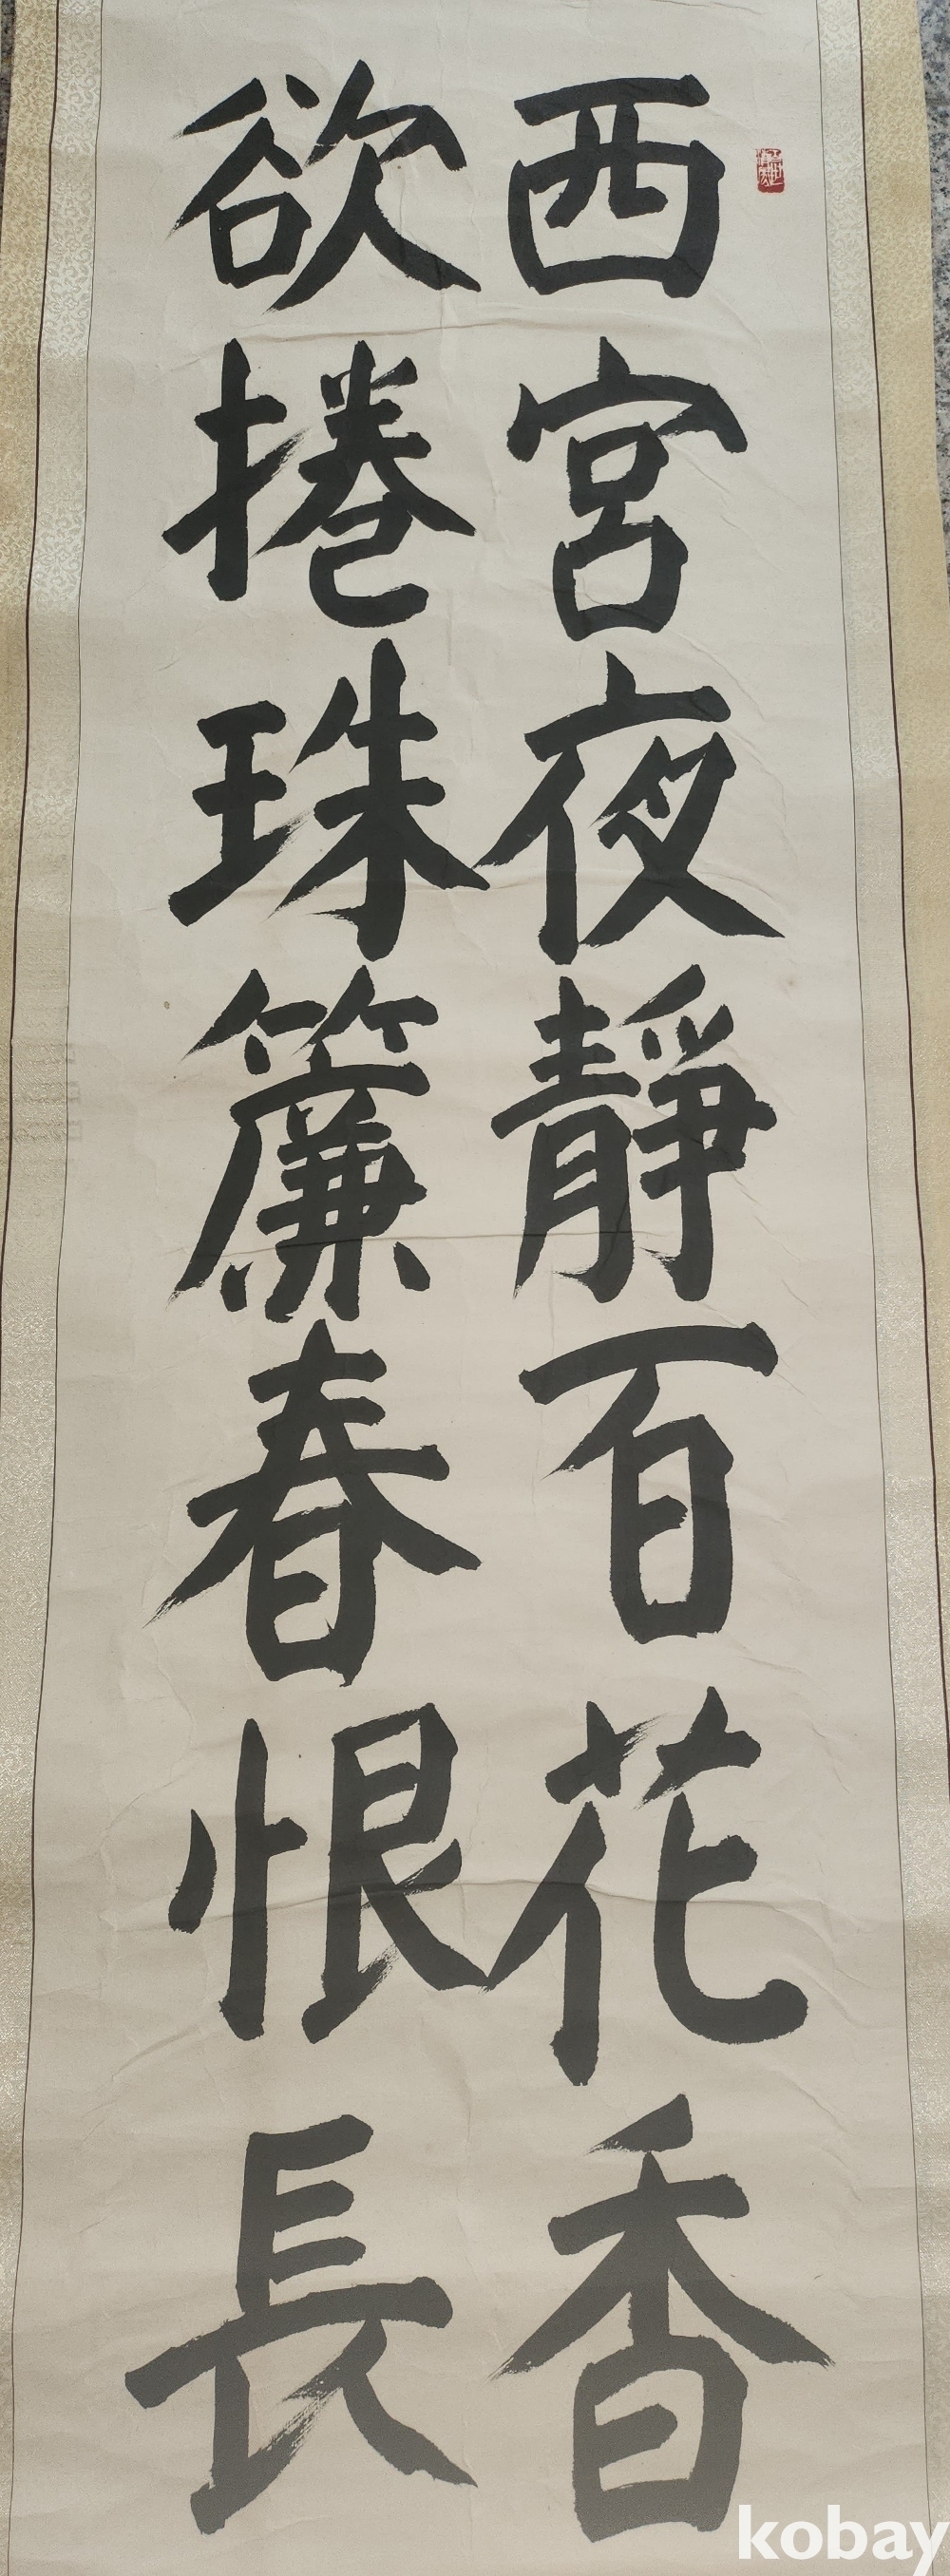 西宮夜靜百花香
欲捲珠簾春恨長
kobay